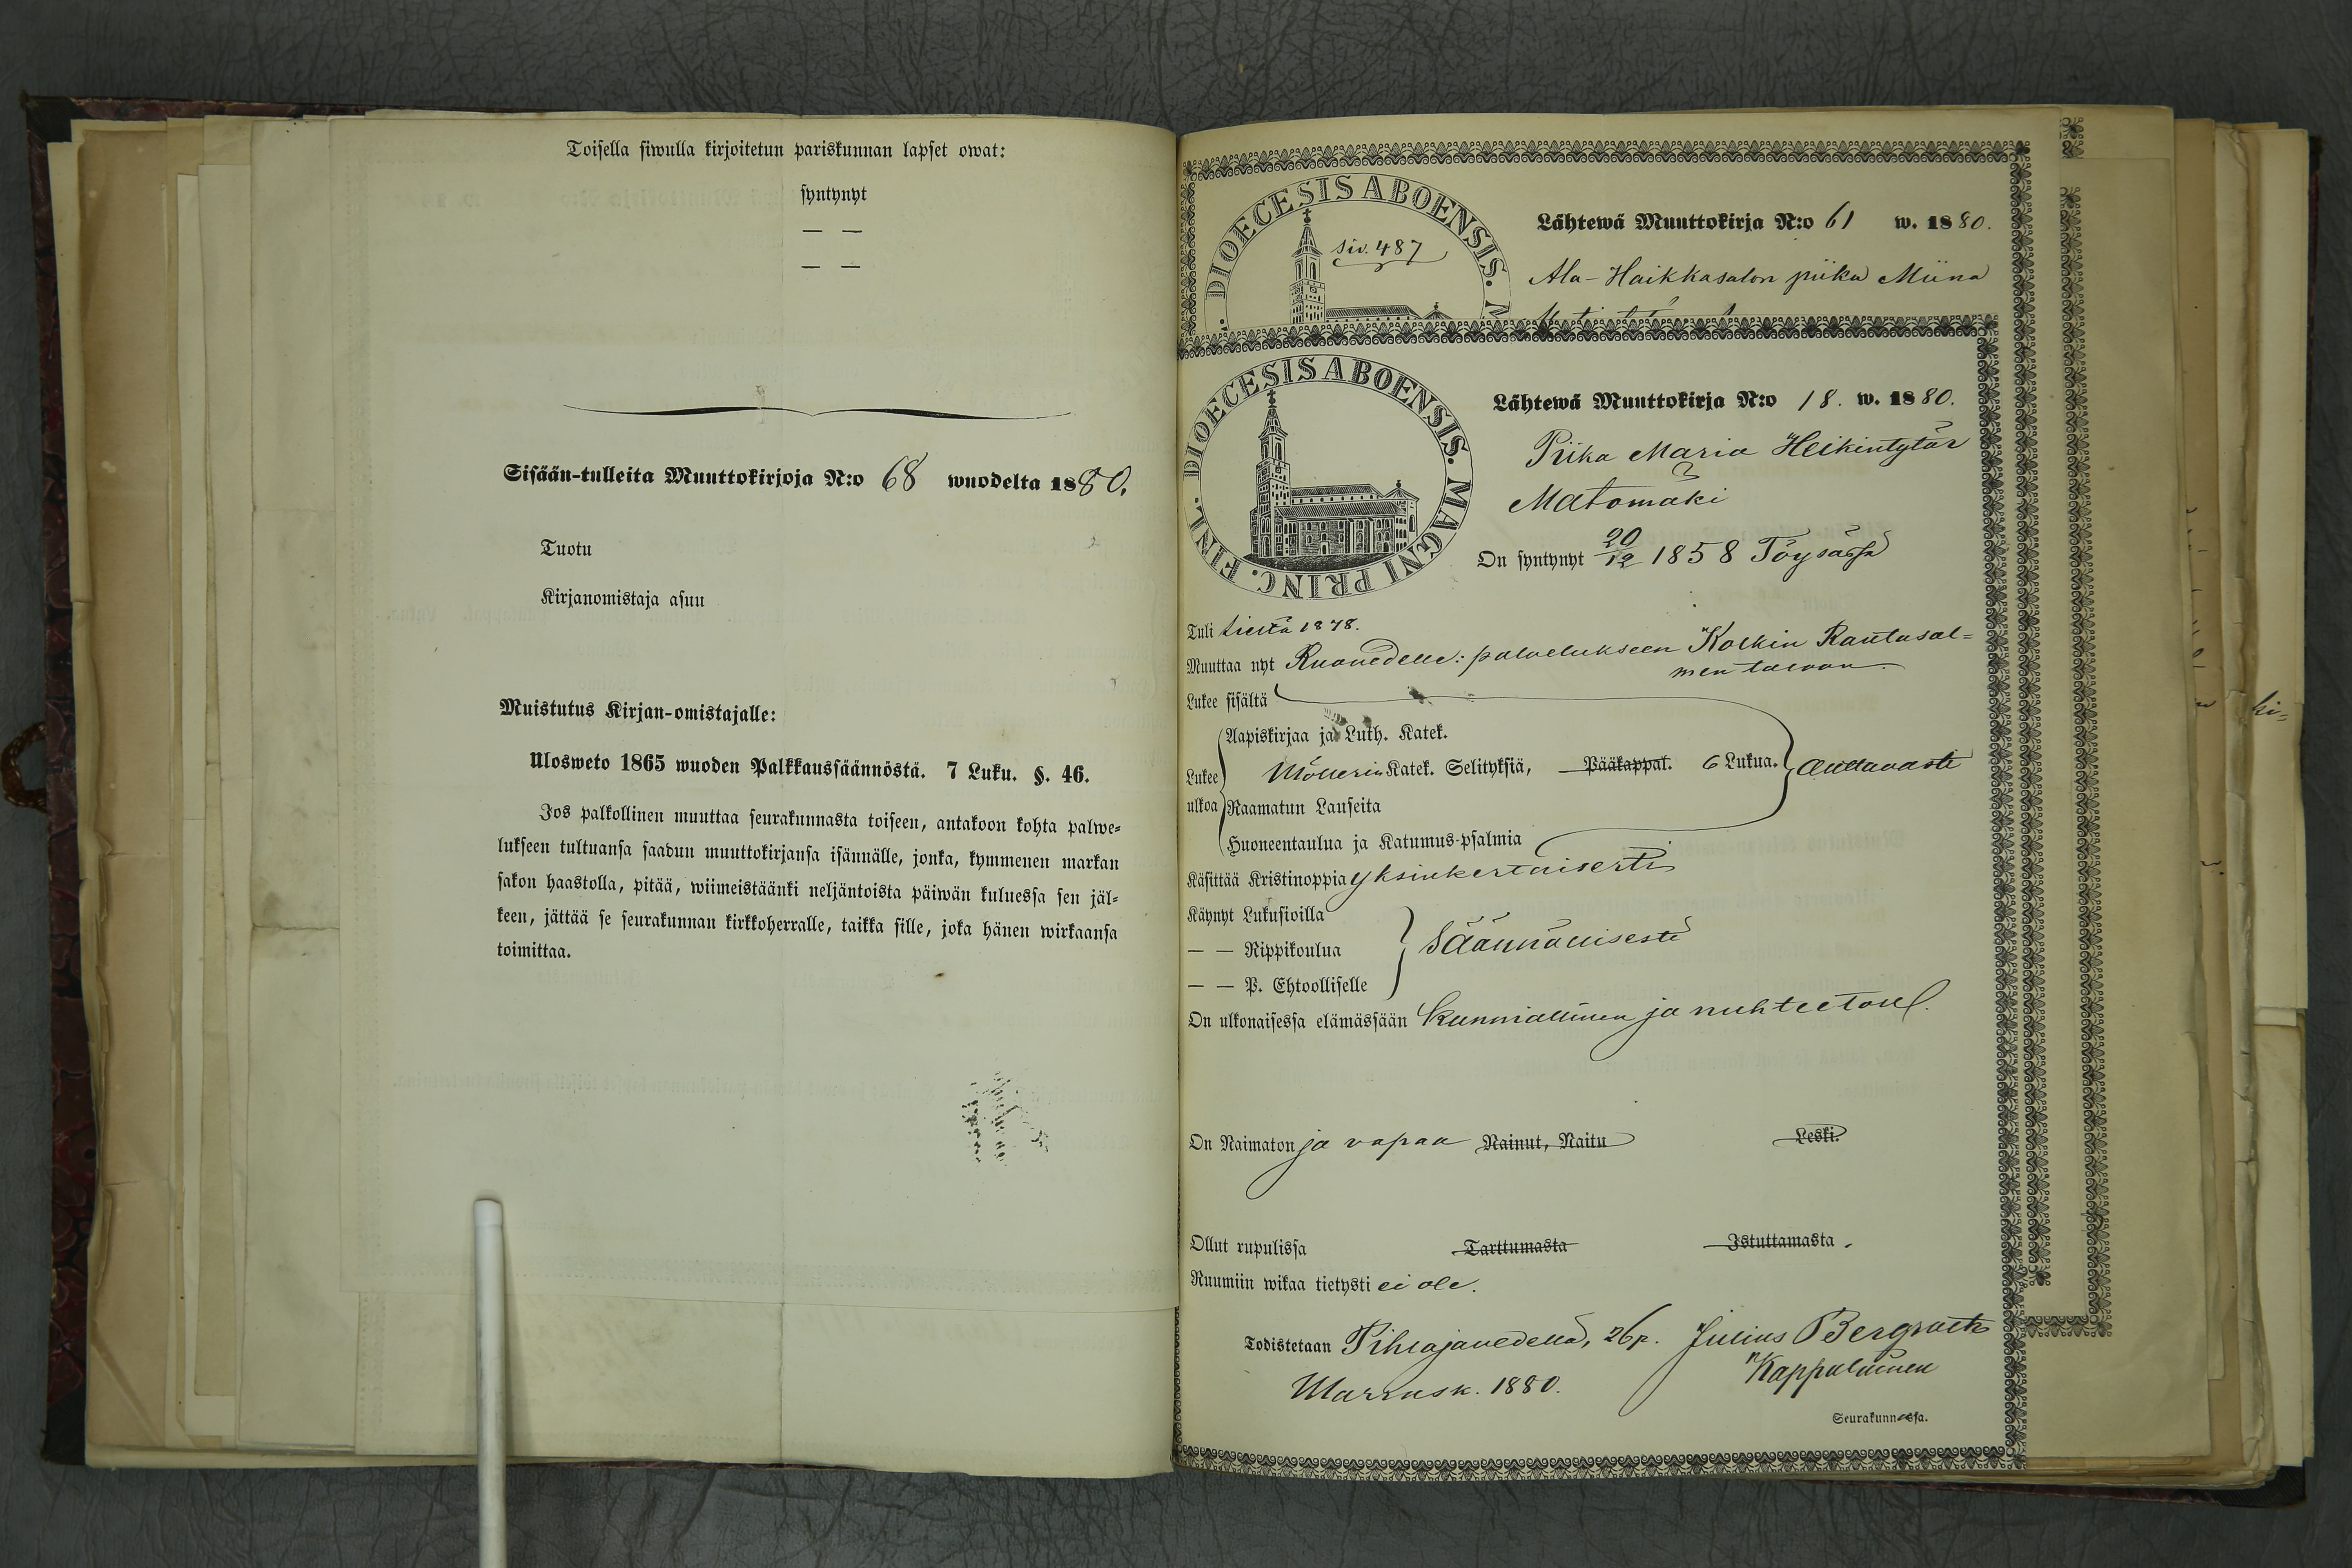 Toisella siwulla kirjoitetun pariskunnan lapset owat:
syntynyt
— —
— —
Sisään-tulleita Muuttokirjoja N:o 68 wuodelta 1880.
Tuotu
Kirjanomistaja asuu
Muistutus Kirjan-omistajalle:
Ulosweto 1865 wuoden Palkkaussäännöstä. 7 Luku. §. 46.
Jos palkollinen muuttaa seurakunnasta toiseen, antakoon kohta palwe-
lukseen tultuansa saadun muuttokirjansa isännälle, jonka, kymmenen markan
sakon haastolla, pitää, wiimeistäänki neljäntoista päiwän kuluessa sen jäl-
keen, jättää se seurakunnan kirkkoherralle, taikka sille, joka hänen wirkaansa
toimittaa.
DIOECESIS ABOENSIS. M
siv. 487
Lähtewä Muuttokirja N:o 61 w. 1880.
Ala-Haikkasalon piika Miina
DIOECESIS ABOENSIS. MAGNI PRINC. FINL.
Lähtewä Muuttokirja N:o 18. w. 1880.
Piika Maria Heikintytär
Matomäki
On syntynyt 20/12 1858 Töysässä
Tuli sieltä 1878.
Muuttaa nyt Ruovedelle: palvelukseen Kolkin Rantasal=
men taloon.
Lukee sisältä
Aapiskirjaa ja Luth. Katek.
Lukee ulkoa Möllerin Katek. Selityksiä, Pääkappal. 6 Lukua. auttavasti
Raamatun Lauseita
Huoneentaulua ja Katumus-psalmia
Käsittää Kristinoppia yksinkertaisesti
Käynyt Lukusioilla
— — Rippikoulua säännöllisesti
— — P. Ehtoolliselle
On ulkonaisessa elämässään kunniallinen ja nuhteetoin.
On Naimaton ja vapaa Nainut, Naitu Leski.
Ollut rupulissa Tarttumasta Istuttamasta.
Ruumiin wikaa tietysti ei ole.
Todistetaan Pihlajavedellä, 26 p. Julius Bergroth
Marrask. 1880. Kappalainen
Seurakunnassa.